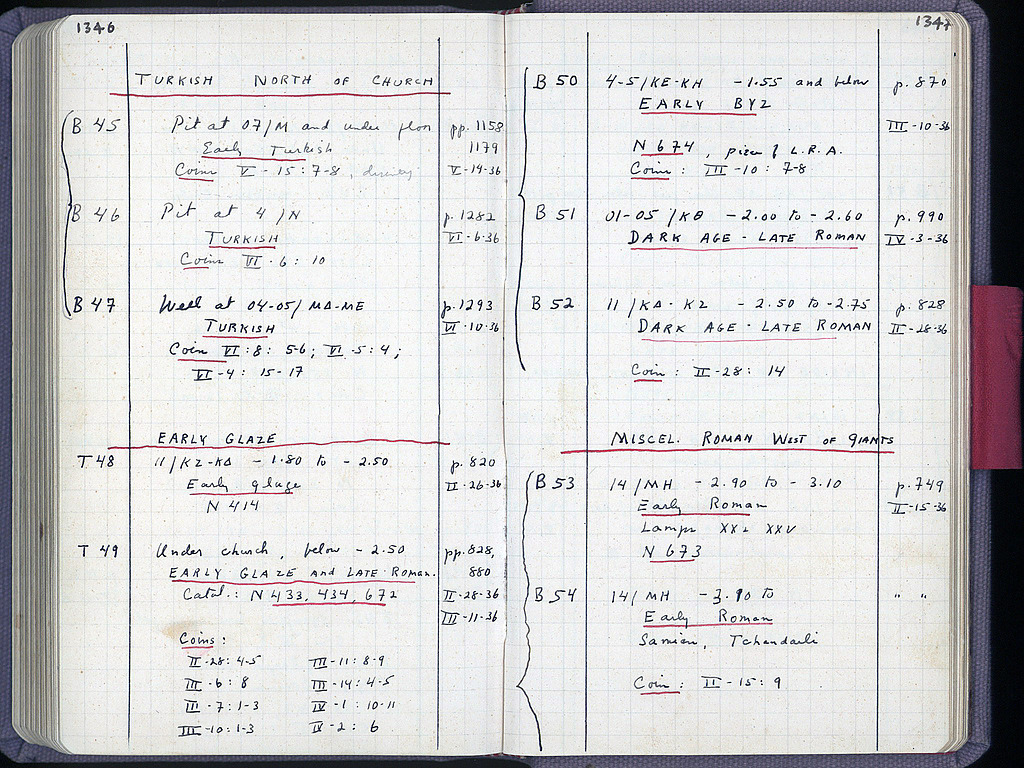 1346
TURKISH NORTH OF CHURCH
B 45 Pit at 07/M and under floor pp. 1158
Early Turkish 1179
Coins V - 15 : 7-8, V-14-36
B 46 Pit at 4/N p. 1282
TURKISH VI-6-36
Coins VI - 6 : 10
B 47 Well at 04-05/MΔ-ME p. 1293
TURKISH VI-10-36
Coin VI : 8 : 5-6 ; VI - 5 : 4 ;
VI - 4 : 15-17
EARLY GLAZE
T 48 11/KZ-KΔ - 1.80 to - 2.50 p. 820
Early glaze II-26-36
N 414
T 49 Under church, below - 2.50 pp. 828,
EARLY GLAZE and LATE ROMAN. 880
Catal.: N 433, 434, 672 II-28-36
III-11-36
Coins:
II -28 : 4-5 III - 11 : 8-9
III - 6 : 8 III - 14 : 4-5
III - 7 : 1-3 IV - 1 : 10-11
III - 10 : 1-3 IV - 2 : 6
1347
B 50 4-5/KE-KH -1.55 and below p. 870
EARLY BYZ
III-10-36
N 674, piece of L.R.A.
Coins : III - 10 : 7-8
B 51 01-05/KΘ - 2.00 to - 2.60 p. 990
DARK AGE - LATE ROMAN IV-3-36
B 52 11/KΔ-KZ - 2.50 to - 2.75 p. 828
DARK AGE - LATE ROMAN II-28-36
Coin : II - 28 : 14
MISCEL. ROMAN WEST OF GIANTS
B 53 14/MH - 2.90 to - 3.10 p. 749
Early Roman II-15-36
Lamps XX XXV
N 673
B 54 14/MH - 3.10 to " "
Early Roman
Samian, Tchandarli
Coin : II - 15 : 9